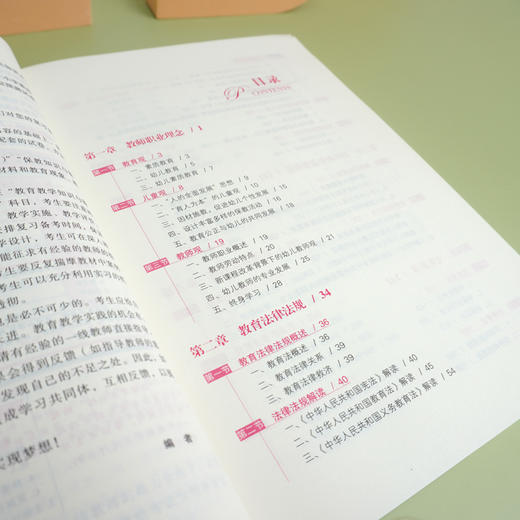 目录
CONTENTS
第一章 教师职业理念 / 1
第一节 教育观 / 3
一、素质教育 / 3
二、幼儿教育 / 5
三、幼儿素质教育 / 7
第二节 儿童观 / 8
一、“人的全面发展”思想 / 9
二、“育人为本”的儿童观 / 10
三、因材施教，促进幼儿个性发展 / 15
四、设计丰富多样的保教活动 / 16
五、教育公正与幼儿的共同发展 / 18
第三节 教师观 / 19
一、教师职业概述 / 19
二、教师劳动特点 / 20
三、新课程改革背景下的幼儿教师观 / 21
四、幼儿教师的专业发展 / 25
五、终身学习 / 28
第二章 教育法律法规 / 34
第一节 教育法律法规概述 / 36
一、教育法概述 / 36
二、教育法律关系 / 39
三、教育法律救济 / 39
第二节 法律法规解读 / 40
一、《中华人民共和国宪法》解读 / 40
二、《中华人民共和国教育法》解读 / 45
三、《中华人民共和国义务教育法》解读 / 54
们对您的
容的基础上
配套的试卷，
”“保教知
材料和教育现象
“教育教学知识
科目，考生要注
教学实施、教学评
排复习备考时间，保
学设计，考生可在深
能征求有经验的教师的
考生要反复揣摩教材中
考生可以充分利用实习的
透彻。
也是必不可少的。考生应
走进。教育教学实践的机会
请有经验的一线教师直接指导
会得到反馈（如指导教师的
发现自己的不足之处。因此，
成学习共同体，互相反馈，以
实现梦想！
编 者